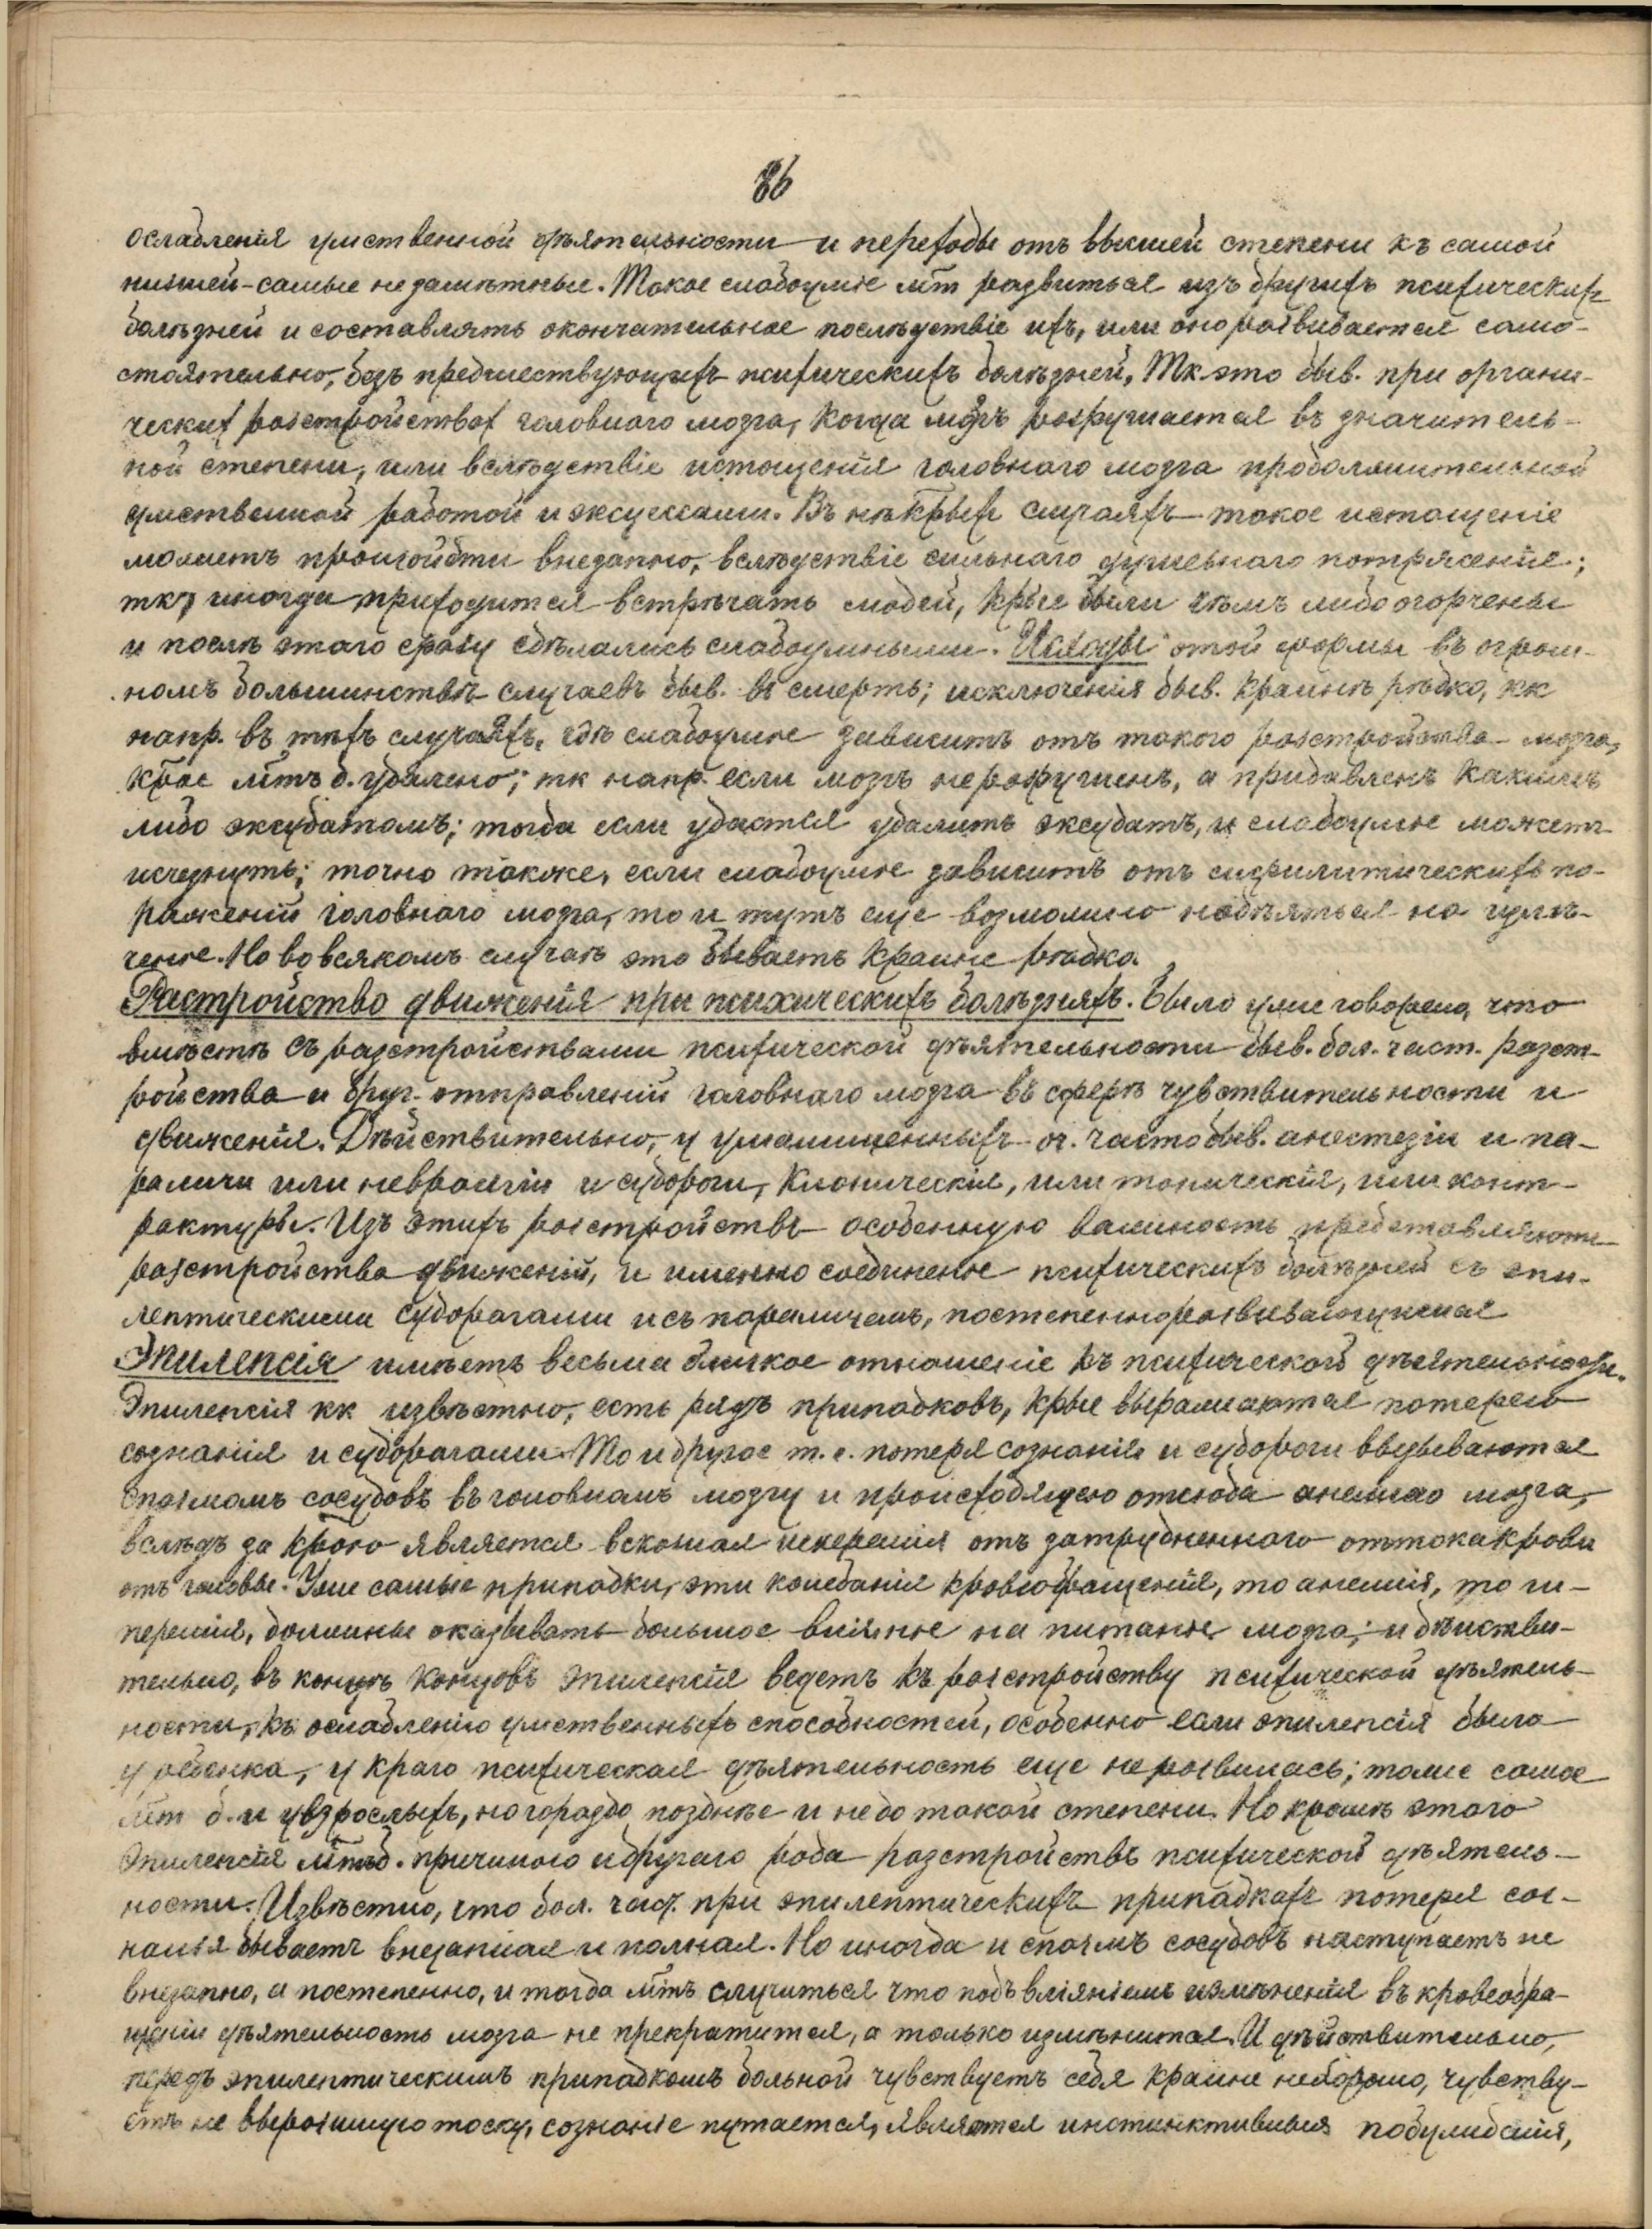 86
ослабленія умственной дѣятельности и переходы отъ высшей степени къ самой
низшей - самые незамѣтные. Такое слабоуміе мт развиться изъ другихъ психическихъ
болѣзней и составлять окончательное послѣдствіе ихъ, или оно развивается само-
стоятельно, безъ предшествующихъ психическихъ болѣзней, Тк это быв. при органи-
ческих разстройствах головного мозга, когда мозгъ разрушается въ значитель-
ной степени, или вслѣдствіе истощенія головнаго мозга продолжительной
умственной работой и эксцессами. Въ нѣкрыхъ случаяхъ такое истощеніе
можетъ произойдти внезапно, вслѣдствіе сильнаго душевнаго потрясенія;
тк, иногда приходится встрѣчать людей, крые были чѣмъ либо огорчены
и послѣ этаго сразу сдѣлались слабоумными. Исходы этой формы въ огром-
номъ большинствѣ случаевъ быв. въ смерть; исключенія быв. крайнѣ рѣдко, кк
напр. въ тѣхъ случаяхъ, гдѣ слабоуміе зависитъ отъ такого разстройства мозга,
крое мтъ б. удалено; тк напр. если мозгъ не разрушенъ, а придавленъ какимъ
либо эксудатомъ; тогда если удастся удалить эксудатъ, и слабоуміе можетъ
исчезнуть; точно также, если слабоуміе зависитъ отъ сифилитическихъ по-
раженій головнаго мозга, то и тутъ еще возможно надѣяться на излѣ-
ченіе. Но во всякомъ случаѣ это бываетъ крайне рѣдко.
Растройство движенія при психическихъ болѣзняхъ. Было уже говорено, что
вмѣстѣ съ разстройствами психической дѣятельности быв. бол. част. разст-
ройства и друг. отправленій головнаго мозга въ сферѣ чувствительности и
движенія. Дѣйствительно, у умалишенныхъ оч. часто быв. анестезіи и па-
раличи или невралгіи и судороги, клоническія, или тоническія, или конт-
рактуры. Изъ этихъ разстройствъ особенную важность представляютъ
разстройства движеній, и именно соединеніе психическихъ болѣзней съ эпи-
лептическими судорогами и съ параличемъ, постепенно развивающимся
Эпилепсія имѣетъ весьма близкое отношеніе къ психической дѣятельности.
Эпилепсія кк извѣстно, есть рядъ припадковъ, крые выражаются потерею
сознанія и судорогами. То и другое т. е. потеря сознанія и судороги вызываются
спазмомъ сосудовъ въ головномъ мозгу и происходящею отсюда анеміею мозга,
вслѣдъ за крою является венозная гиперемія отъ затрудненнаго оттока крови
отъ головы. Уже самые припадки, эти колебанія кровообращенія, то анемія, то ги-
перемія, должны оказывать большое вліяніе на питаніе мозга; и дѣйстви-
тельно, въ концѣ концовъ эпилепсія ведетъ къ разстройству психической дѣятель-
ности, къ ослабленію умственныхъ способностей, особенно если эпилепсія была
у ребенка, у краго психическая дѣятельность еще не развилась; тоже самое
мт б. и у взрослыхъ, но гораздо позднѣе и не до такой степени. Но кромѣ этого
Эпилепсія мтъ б. причиною и другаго рода разстройствъ психической дѣятель-
ности. Извѣстно, что бол. част. при эпилептическихъ припадкахъ потеря соз-
нанія бываетъ внезапная и полная. Но иногда и спазмъ сосудовъ наступаетъ не
внезапно, а постепенно, и тогда мтъ случиться что подъ вліяніемъ измѣненія въ кровеобра-
щеніи дѣятельность мозга не прекратится, а только измѣнится. И дѣйствительно,
передъ эпилептическимъ припадкомъ больной чувствуетъ себя крайне нехорошо, чувству-
етъ не выразимую тоску, сознаніе путается, являются инстинктивныя побужденія,